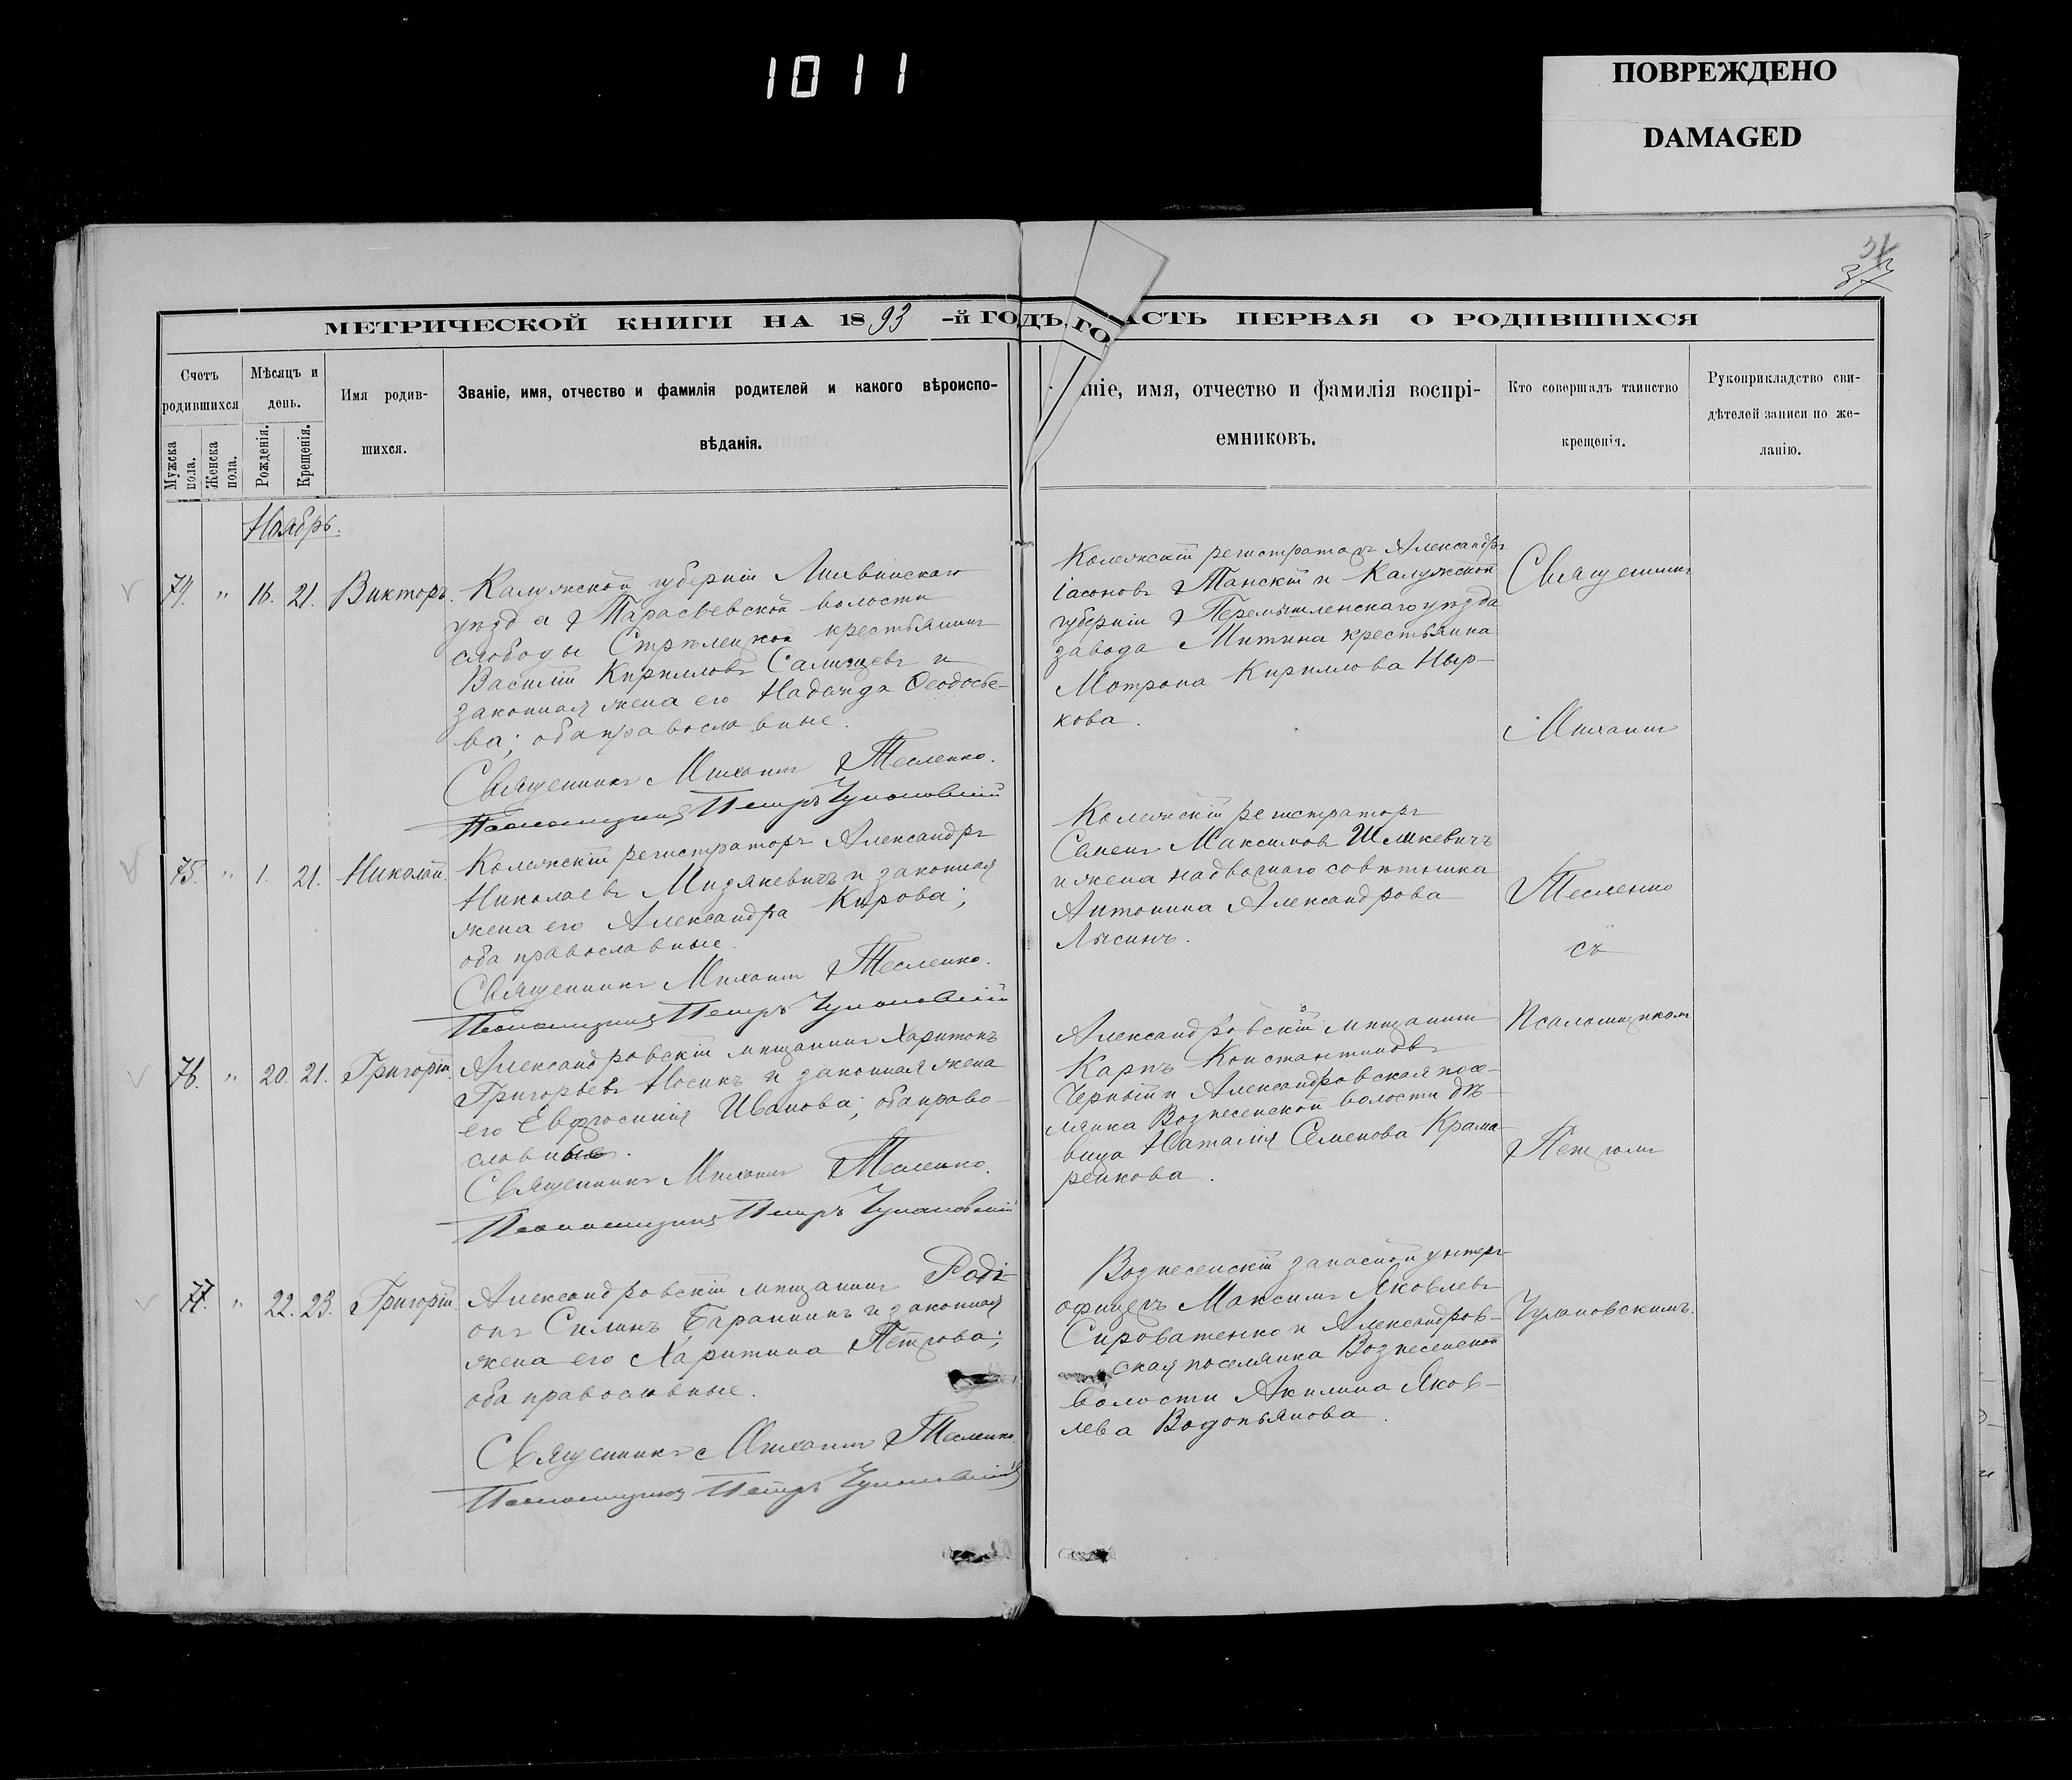 1011
ПОВРЕЖДЕНО
DAMAGED
37
МЕТРИЧЕСКОЙ КНИГИ НА 1893-й ГОДЪ, ГО АСТЬ ПЕРВАЯ О РОДИВШИХСЯ
Счетъ родившихся
Мужска пола.
Женска пола.
Мѣсяцъ и день.
Рожденія.
Крещенія.
Имя родив-
шихся.
Званіе, имя, отчество и фамилія родителей и какого вѣроиспо-
вѣданія.
ніе, имя, отчество и фамилія воспрі-
емниковъ.
Кто совершалъ таинство
крещенія.
Рукоприкладство сви-
дѣтелей записи по же-
ланію.
Ноябрь.
74. " 16. 21. Викторъ.
Калужской губерніи Лихвинскаго
уѣзда Тарасьевской волости
слободы Стрѣлецкой крестьянинъ
Василій Кирилловъ Салищевъ и
законная жена его Надежда Ѳеодосье-
ва; оба православные.
Священникъ Михаилъ Тесленко.
Псаломщикъ Петръ Чулановскій
Коллежскій регистраторъ Александръ
Іасоновъ Танскій и Калужской
губерніи Перемышленскаго уѣзда
завода Митина крестьянка
Матрона Кириллова Ныр-
кова.
75. " 1. 21. Николай.
Коллежскій регистраторъ Александръ
Николаевъ Мизякевичъ и законная
жена его Александра Кирова;
оба православные.
Священникъ Михаилъ Тесленко.
Псаломщикъ Петръ Чулановскій
Коллежскій регистраторъ
Семенъ Максимовъ Шимкевичъ
и жена надворнаго совѣтника
Антонина Александрова
Лысинъ.
76. " 20. 21. Григорій.
Александровскій мѣщанинъ Харитонъ
Григорьевъ Носикъ и законная жена
его Евфросинія Иванова; оба право-
славные.
Священникъ Михаилъ Тесленко.
Псаломщикъ Петръ Чулановскій
Александровскій мѣщанинъ
Карпъ Константиновъ
Черный и Александровская посе-
лянка Вознесенской волости дѣ-
вица Наталія Семенова Крама-
ренкова.
77. " 22. 23. Григорій.
Александровскій мѣщанинъ Роді-
онъ Силинъ Баранникъ и законная
жена его Харитина Петрова;
оба православные.
Священникъ Михаилъ Тесленко.
Псаломщикъ Петръ Чулановскій
Вознесенскій запасной унтеръ-
офицеръ Максимъ Яковлевъ
Сироватенко и Александров-
ская поселянка Вознесенской
волости Акилина Яков-
лева Водопьянова.
Священникъ
Михаилъ
Тесленко
съ
Псаломщикомъ
Петромъ
Чулановскимъ.